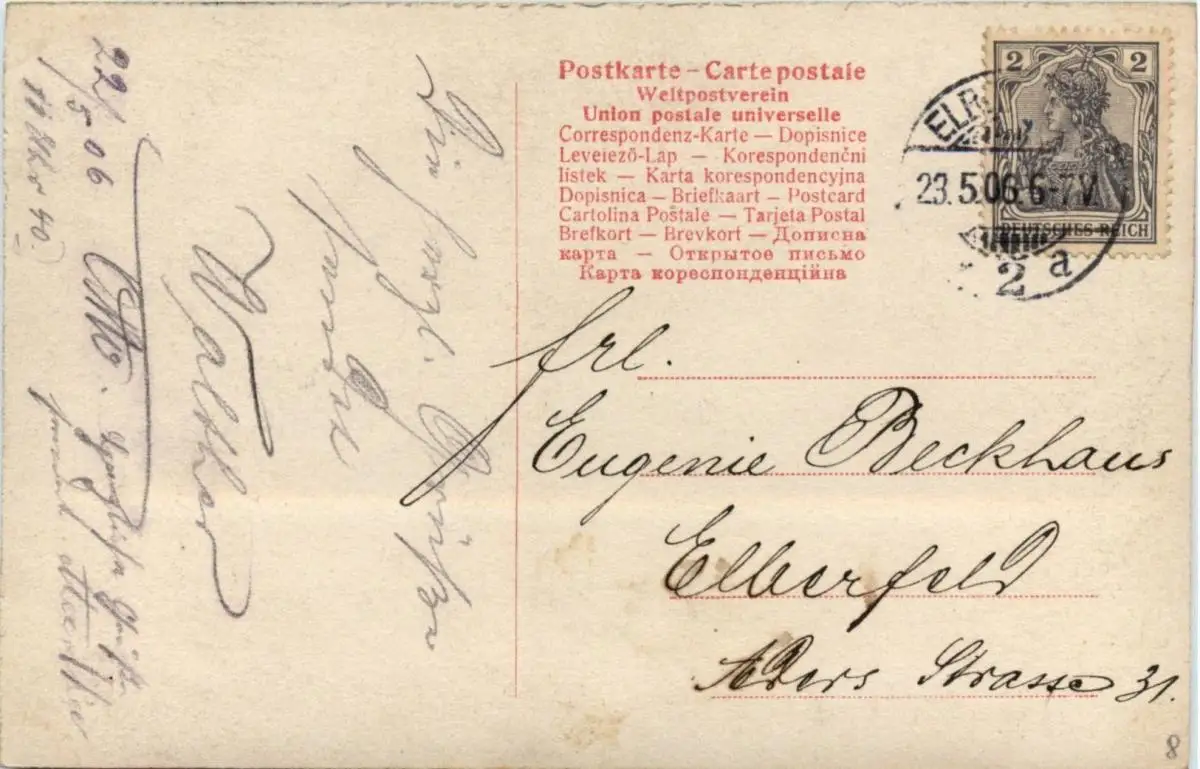 Postkarte – Carte postale
Weltpostverein
Union postale universelle
Correspondenz-Karte — Dopisnice
Levelező-Lap — Korespondenční
lístek — Karta korespondencyjna
Dopisnica — Briefkaart — Postcard
Cartolina Postale — Tarjeta Postal
Brefkort — Brevkort — Дописна
карта — Открытое письмо
Карта кореспонденційна
2 2
DEUTSCHES REICH
ELB
23.5.06.6-7V.
2 a
Frl.
Eugenie Beckhaus
Elberfeld
Aders Strasse 31.
Die herzl. Grüße
Walther
22/5 06
11 Uhr 40
Otto.
8